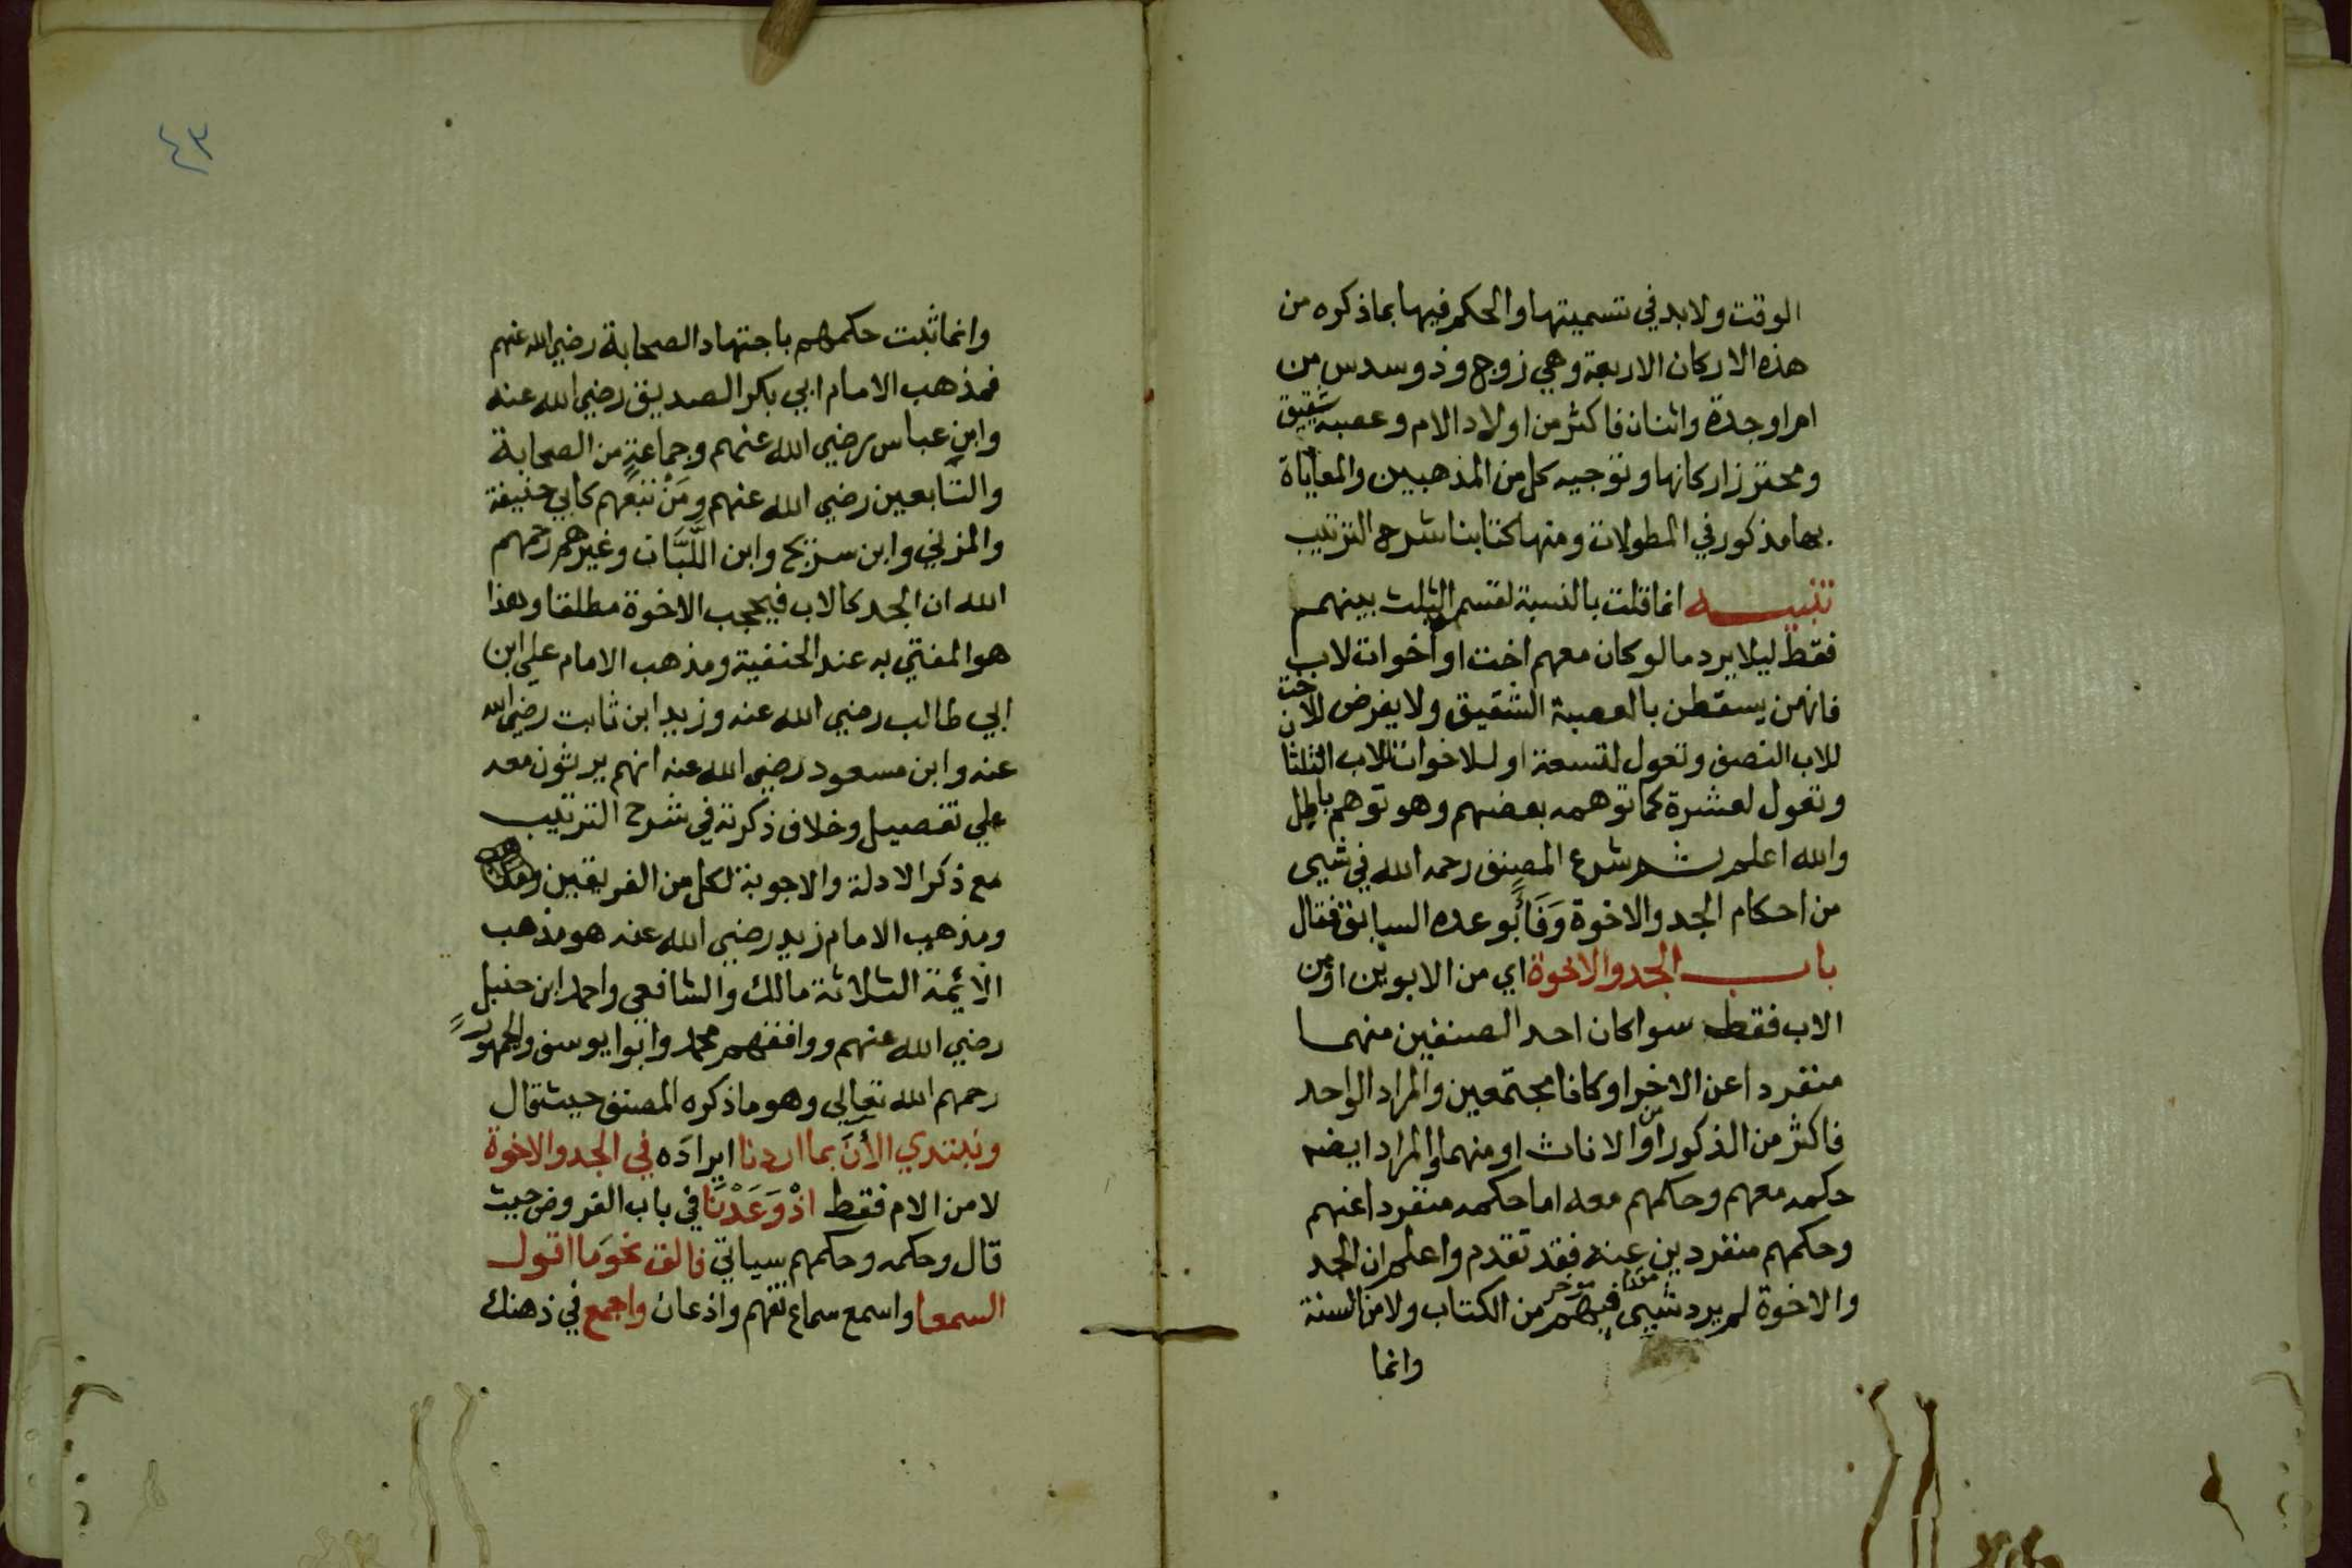 الوقت ولابد في تسميتها والحكم فيها بما ذكره من
هذه الاركان الاربعة وهي زوج وذو سدس من
ام او جدة واثنان فاكثر من اولاد الام وعصبة شقيق
ومحترز اركانها وتوجيه كل من المذهبين والمعاياة
بها مذكور في المطولات ومنها كتابنا شرح الترتيب
تنبيه انما قلت بالنسبة لقسم الثلث بينهم
فقط ليلا يرد ما لو كان معهم اخت او اخوات لاب
فانهن يسقطن بالعصبة الشقيق ولا يفرض للاخت
للاب النصف وتعول لتسعة او للاخوات للاب الثلثان
وتعول لعشرة كما توهمه بعضهم وهو توهم باطل
والله اعلم ثم شرع المصنف رحمه الله في شيى
من احكام الجد والاخوة وفاً بوعده السابق فقال
باب الجد والاخوة اي من الابوين او من
الاب فقط سوا كان احد الصنفين منهما
منفردا عن الاخر او كانا مجتمعين والمراد الواحد
فاكثر من الذكور او من الاناث او منهما والمراد ايضه
حكمه معهم وحكمهم معه اما حكمه منفردا عنهم
وحكمهم منفردين عنه فقد تقدم واعلم ان الجد
والاخوة لم يرد شيى فيهم من الكتاب ولا من السنة
وانما
٤٣
وانما ثبت حكمهم باجتهاد الصحابة رضي الله عنهم
فمذهب الامام ابي بكر الصديق رضي الله عنه
وابن عباس رضي الله عنهم وجماعةٍ من الصحابة
والتابعين رضي الله عنهم ومَنْ تبعهم كابي حنيفة
والمزني وابن سريج وابن اللَّبَّان وغيرهم رحمهم
الله ان الجد كالاب فيحجب الاخوة مطلقا وهذا
هو المفتي به عند الحنفية ومذهب الامام علي ابن
ابي طالب رضي الله عنه وزيد ابن ثابت رضي الله
عنه وابن مسعود رضي الله عنه انهم يرثون معه
علي تفصيل وخلاف ذكرته في شرح الترتيب
مع ذكر الادلة والاجوبة لكل من الفريقين
ومذهب الامام زيد رضي الله عنه هو مذهب
الأئمة الثلاثة مالك والشافعي واحمد ابن حنبل
رضي الله عنهم ووافقهم محمد وابوا يوسف والجمهور
رحمهم الله تعالي وهو ما ذكره المصنف حيث قال
ونبتدي الأنَ بما اردنا ايرادَه في الجد والاخوة
لا من الام فقط اذْ وَعَدْنَا في باب الفروض حيث
قال وحكمه وحكمهم سياتي فالق نحوَ ما اقول
السمعا واسمع سماع تفهم واذعان واجمع في ذهنك